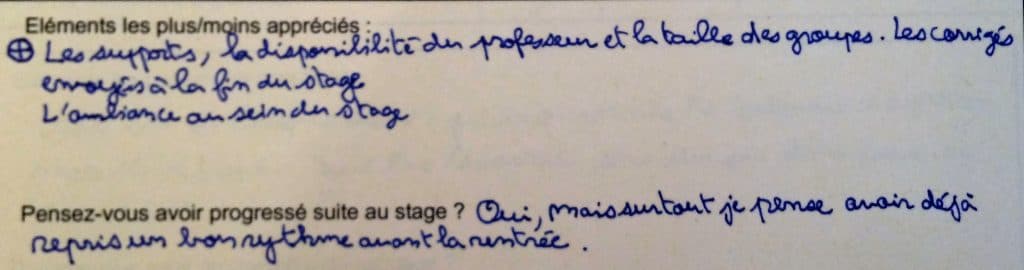 Eléments les plus/moins appréciés :
⊕ Les supports, la disponibilité du professeur et la taille des groupes. Les corrigés
envoyés à la fin du stage
L'ambiance au sein du stage
Pensez-vous avoir progressé suite au stage ? Oui, mais surtout je pense avoir déjà
repris un bon rythme avant la rentrée.